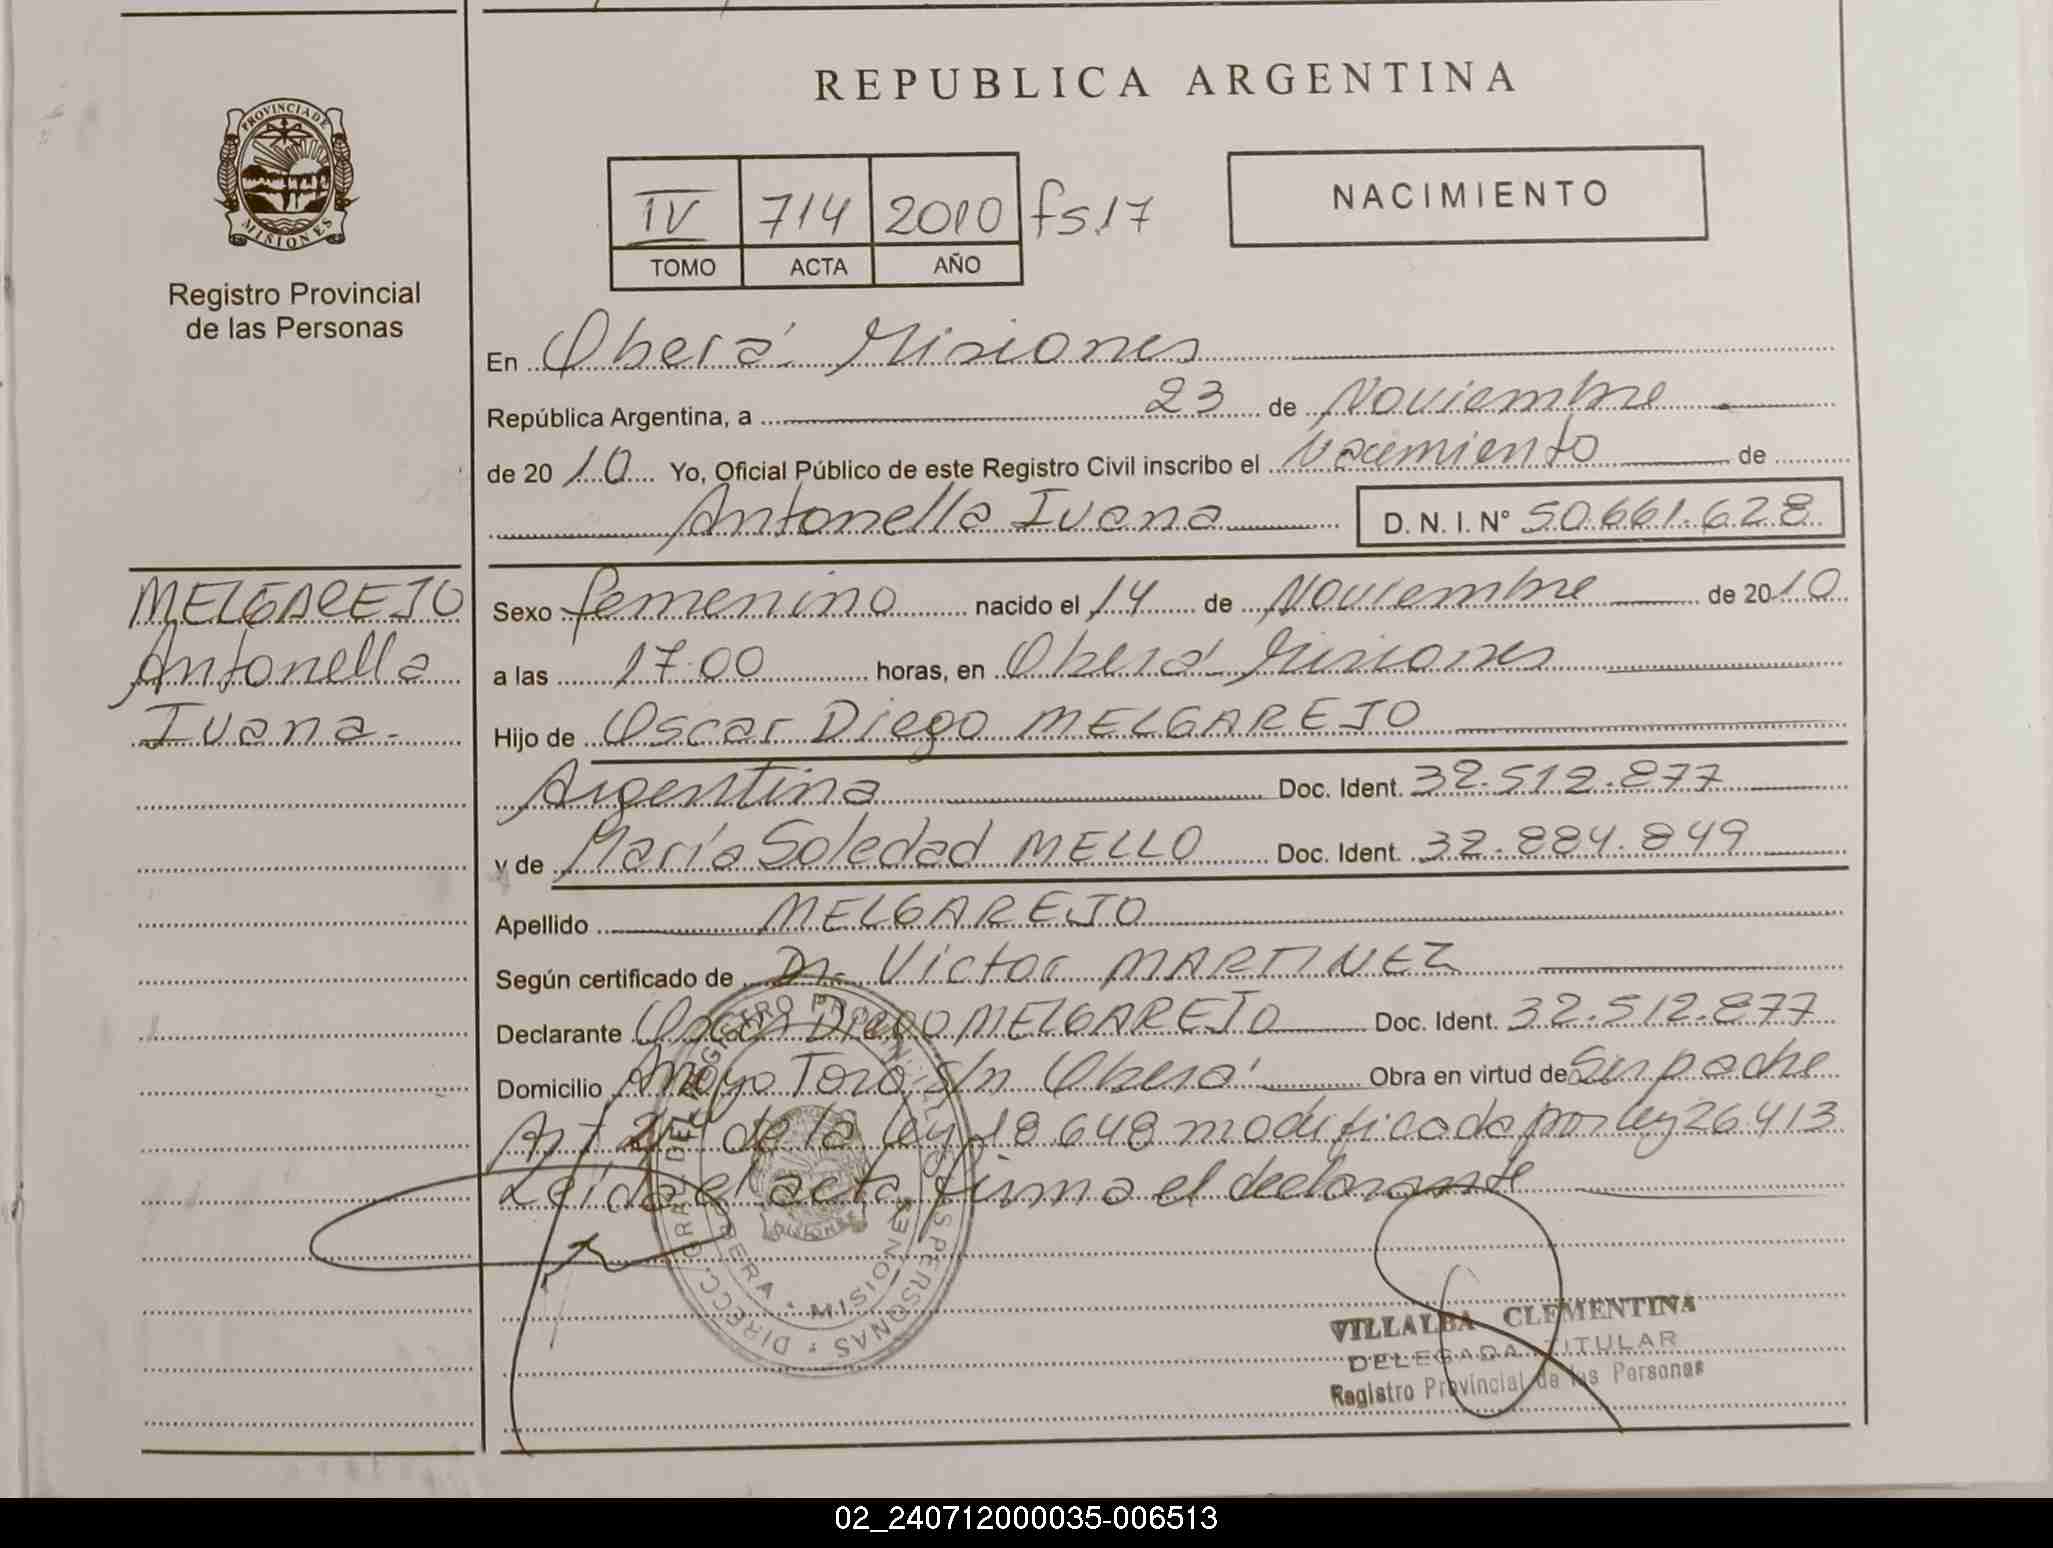 REPUBLICA ARGENTINA
PROVINCIA DE
MISIONES
Registro Provincial
de las Personas
IV 714 2010 fs.17
TOMO ACTA AÑO
NACIMIENTO
En Oberá Misiones
República Argentina, a 23 de Noviembre
de 2010 Yo, Oficial Público de este Registro Civil inscribo el Nacimiento de
Antonella Ivana D. N. I. Nº 50.661.628
MELGAREJO
Antonella
Ivana.-
Sexo femenino nacido el 14 de Noviembre de 2010
a las 17.00 horas, en Oberá Misiones
Hijo de Oscar Diego MELGAREJO
Argentina Doc. Ident. 32.512.877
y de María Soledad MELLO Doc. Ident. 32.884.849
Apellido MELGAREJO
Según certificado de Dr. Victor MARTINEZ
Declarante Oscar Diego MELGAREJO Doc. Ident. 32.512.877
Domicilio Arroyo Toro s/n Oberá Obra en virtud de Ser padre
Art de la ley 18.648 modificada por ley 26413
Leída el acta, firma el declarante
DIRECC. GRAL. DEL REGISTRO PROVINCIAL DE LAS PERSONAS
OBERA - MISIONES
VILLALBA CLEMENTINA
DELEGADA TITULAR
Registro Provincial de las Personas
02_240712000035-006513